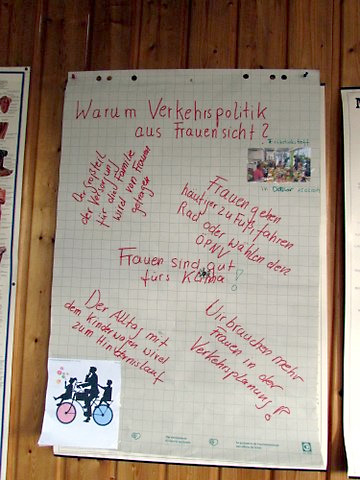 Warum Verkehrspolitik
aus Frauensicht?
Der Großteil
der Versorgung
für die Familie
wird von Frauen
getragen
in
Frauen gehen
häufiger zu Fuß, fahren
Rad oder wählen den
ÖPNV
Frauen sind gut
fürs Klima!
Der Alltag mit
dem Kinderwagen wird
zum Hindernislauf
Wir brauchen mehr
Frauen in der
Verkehrsplanung!!